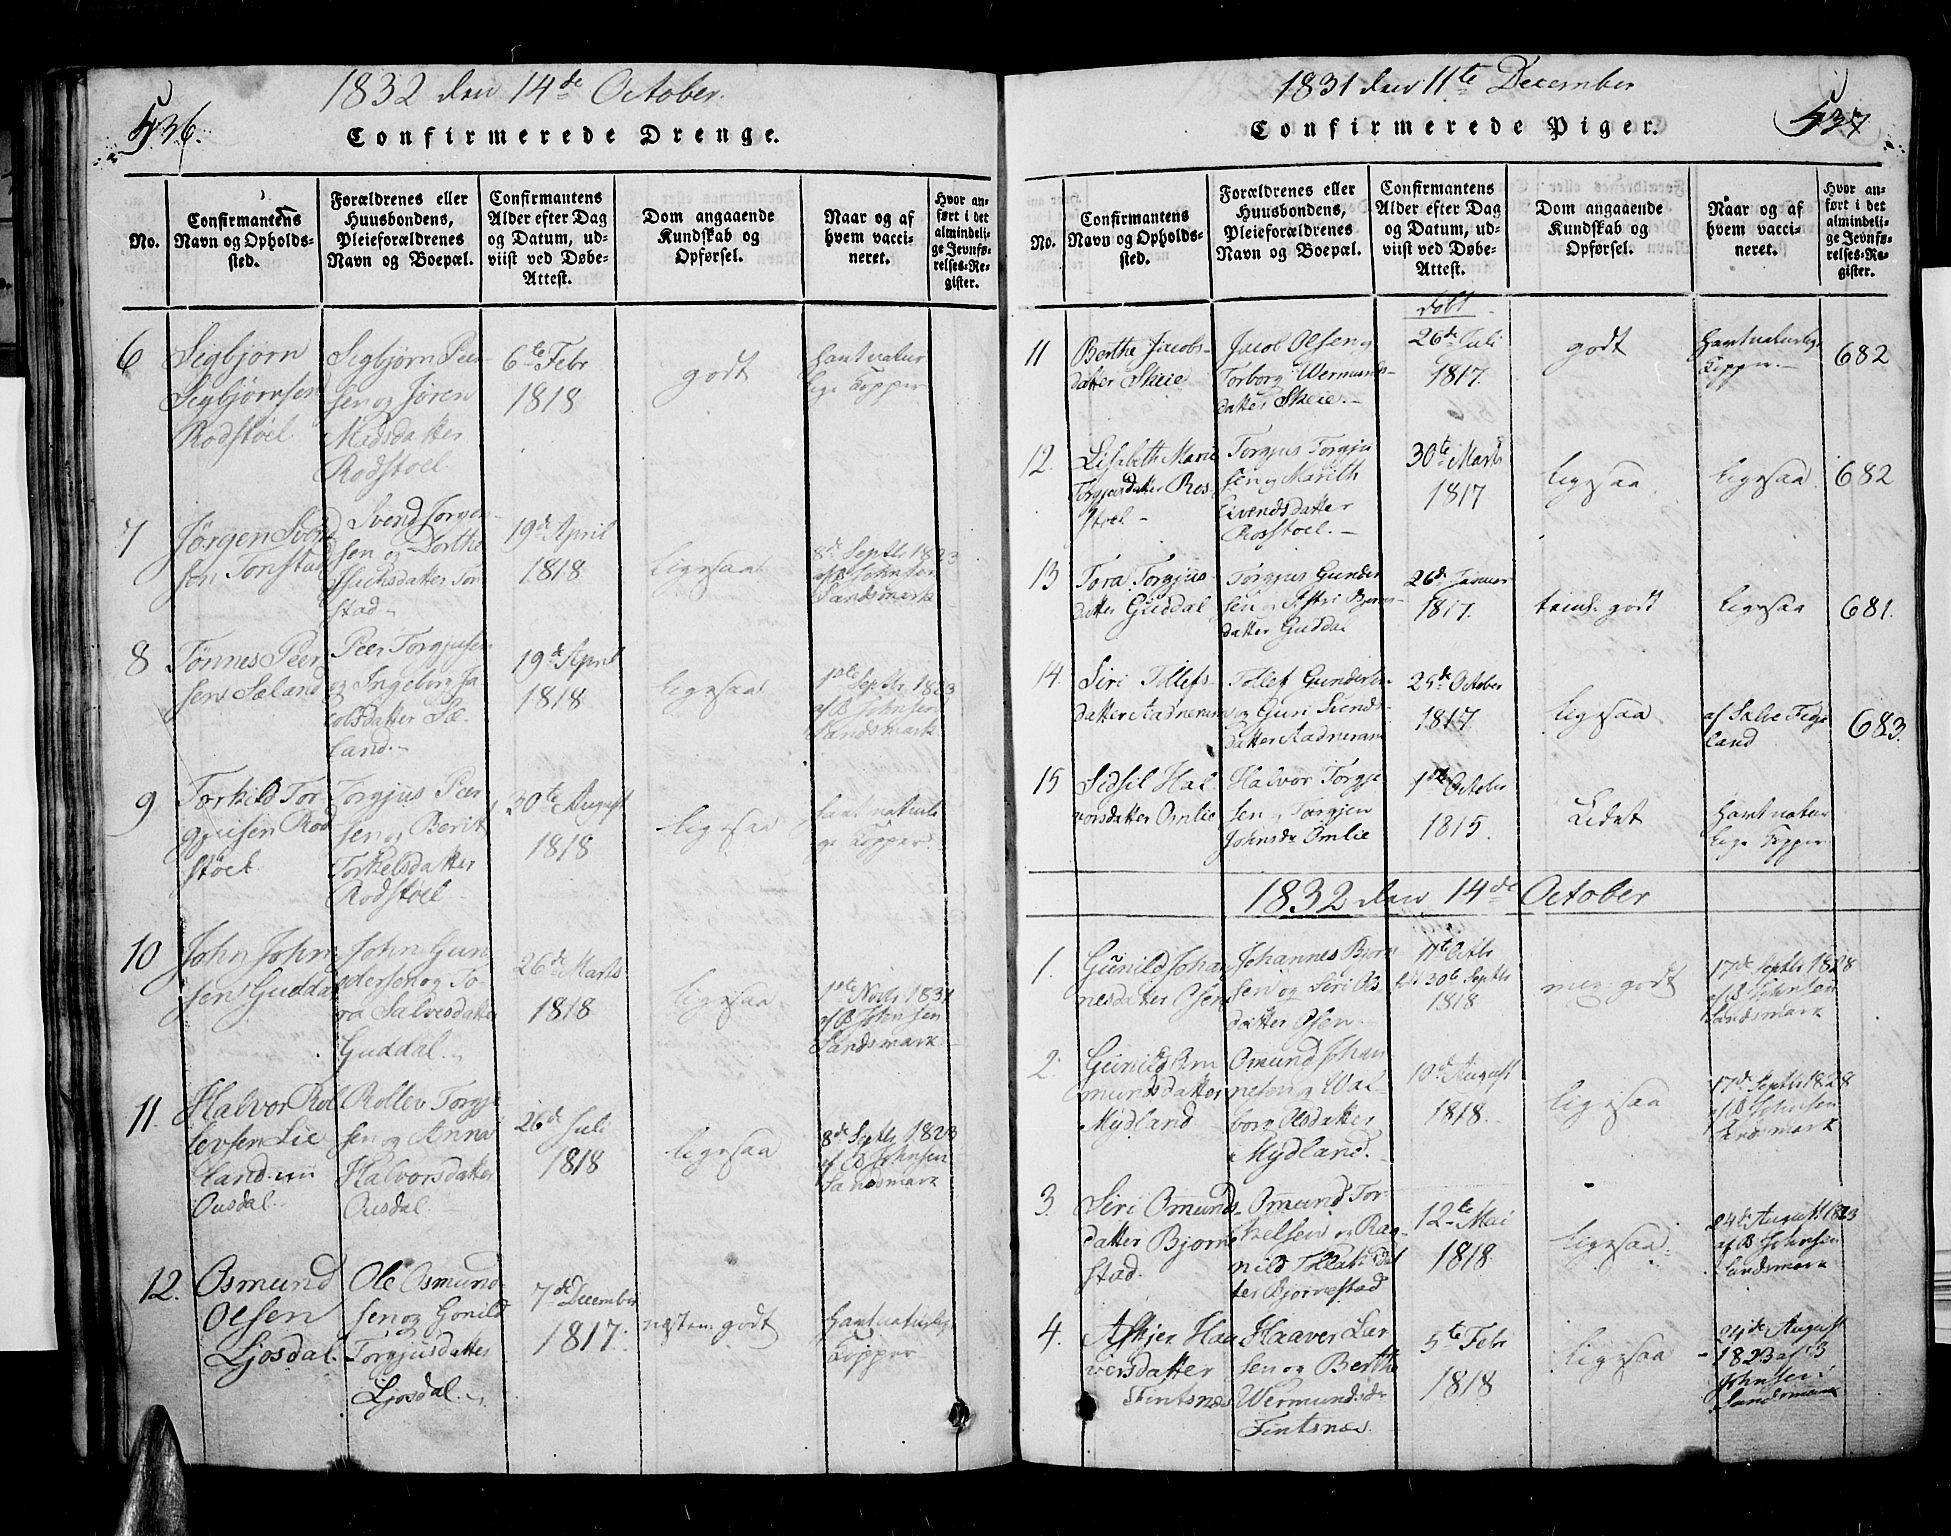 1832 den 14de October.
436.
Confirmerede Drenge.
No.
Confirmantens
Navn og Opholds-
sted.
Forældrenes eller
Huusbondens,
Pleieforældrenes
Navn og Boepæl.
Confirmantens
Alder efter Dag
og Datum, ud-
viist ved Døbe-
Attest.
Dom angaaende
Kundskab og
Opførsel.
Naar og af
hvem vacci-
neret.
Hvor an-
ført i det
almindeli-
ge Jevnfø-
relses-Re-
gister.
6
Sigbjørn
Sigbjørnsen
Rodstoel
Sigbjørn Peer-
sen og Jøren
Nielsdatter
Rodstoel
6te Febr
1818
godt
havt natur
lige Kopper
7
Jørgen Svend
sen Tonstad
Svend Jørgen-
sen og Dorthe
datter Ton
stad
19de April
1818
ligesaa
8de Septbr 1823
af B Johnsen
Sandsmark
8
Tønnes Peer
sen Sæland
Peer Torgjusen
og Ingeborg Ja
cobsdatter Sæ-
land.
19de April
1818
ligesaa
1ste Septbr 1823
af B Johnsen
Sandsmark
9
Torkild Tor
gjusen Rod
stoel
Torgjus Peer
sen og Berit
Torkelsdatter
Rodstoel
30te August
1818
ligesaa
havt naturli
ge Kopper
10
John John
sen Guddal
John Gun
dersen og To-
ra Salvesdatter
Guddal.
26de Marts
1818
ligesaa
1ste Novbr 1831
af B Johnsen
Sandsmark
11.
Halvor Rol
levsen Lie
land
Ousdal
Rollev Torgju
sen og Anna
Halvorsdatter
Ousdal
26de Juli
1818
ligesaa
8de Septbr 1823
af B Johnsen
Sandsmark
12.
Osmund
Olsen
Ljosdal
Ole Osmund
sen og Gunild
Torgjusdatter
Ljosdal
7de December
1817.
næsten godt
havt naturlige
Kopper
1831 den 11te December
437
Confirmerede Piger.
No.
Confirmantens
Navn og Opholds-
sted.
Forældrenes eller
Huusbondens,
Pleieforældrenes
Navn og Boepæl.
Confirmantens
Alder efter Dag
og Datum, ud-
viist ved Døbe-
Attest.
Dom angaaende
Kundskab og
Opførsel.
Naar og af
hvem vacci-
neret.
Hvor an-
ført i det
almindeli-
ge Jevnfø-
relses-Re-
gister.
11
Berthe Jacobs-
datter Skeie
Jacob Olsen og
Torborg Wermunds-
datter Skeie.
døbt
26de Juli
1817.
godt
havt naturlige
Kopper
682
12.
Lisebeth Marie
Torgjusdatter Ros-
stoel
Torgjus Torgju
sen og Marith
Sivendsdatter
Rosstoel.
30te Marts
1817
ligesaa
ligesaa
682
13
Tora Torgjus-
datter Guddal
Torgjus Gunder
sen og
datter Guddal
26de Januar
1817.
temmel. godt
ligesaa
681.
14.
Siri Tollefs-
datter Aadneram
Tollef Gundersen
og Guri Svends
datter Aadneram
25de October
1817.
ligesaa
af Salve Fige
land
683.
15
Sidsil Hal
vorsdatter Omlie
Halvor Torgju
sen og Torgjer
Johnsdr Omlie
1ste Octobr
1815.
Lidet
havt natur
lige Kopper
1832 den 14de October
1.
Gunild Johan
nesdatter Osen
Johannes Bjørn
sen og Siri As
datter Osen
30te Septbr
1818
meg. godt
17de Septbr 1828
af B Johnsen
Sandsmark
2.
Gunild Om
mundsdatter
Mydland
Omund Johan
nesen og Wal
borg Olsdatter
Mydland.
10de August
1818.
ligesaa
17de Septbr 1828
af B Johnsen
Sandsmark
3.
Siri Omunds-
datter Bjørne
stad.
Omund Tor-
kelsen og Rag-
nild Tollefsdat
ter Bjørnestad
12te Mai
1818
ligesaa
24de August 1823
af B Johnsen
Sandsmark
4.
Askjer Haa
versdatter
Fintsnæs
Haaver Lar
sen og Berthe
Wermundsdr
Fintsnæs
5te Febr
1818
ligesaa
24de August
1823 af B
Johnsen
Sandsmark